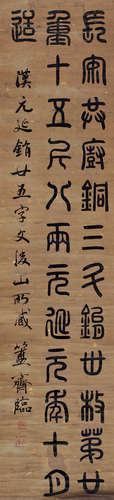 長安共廚銅三斗鋗廿枚第廿
重十五斤八兩元延元年十月
造
漢元延鋗廿五字文後山所藏 簠齋臨